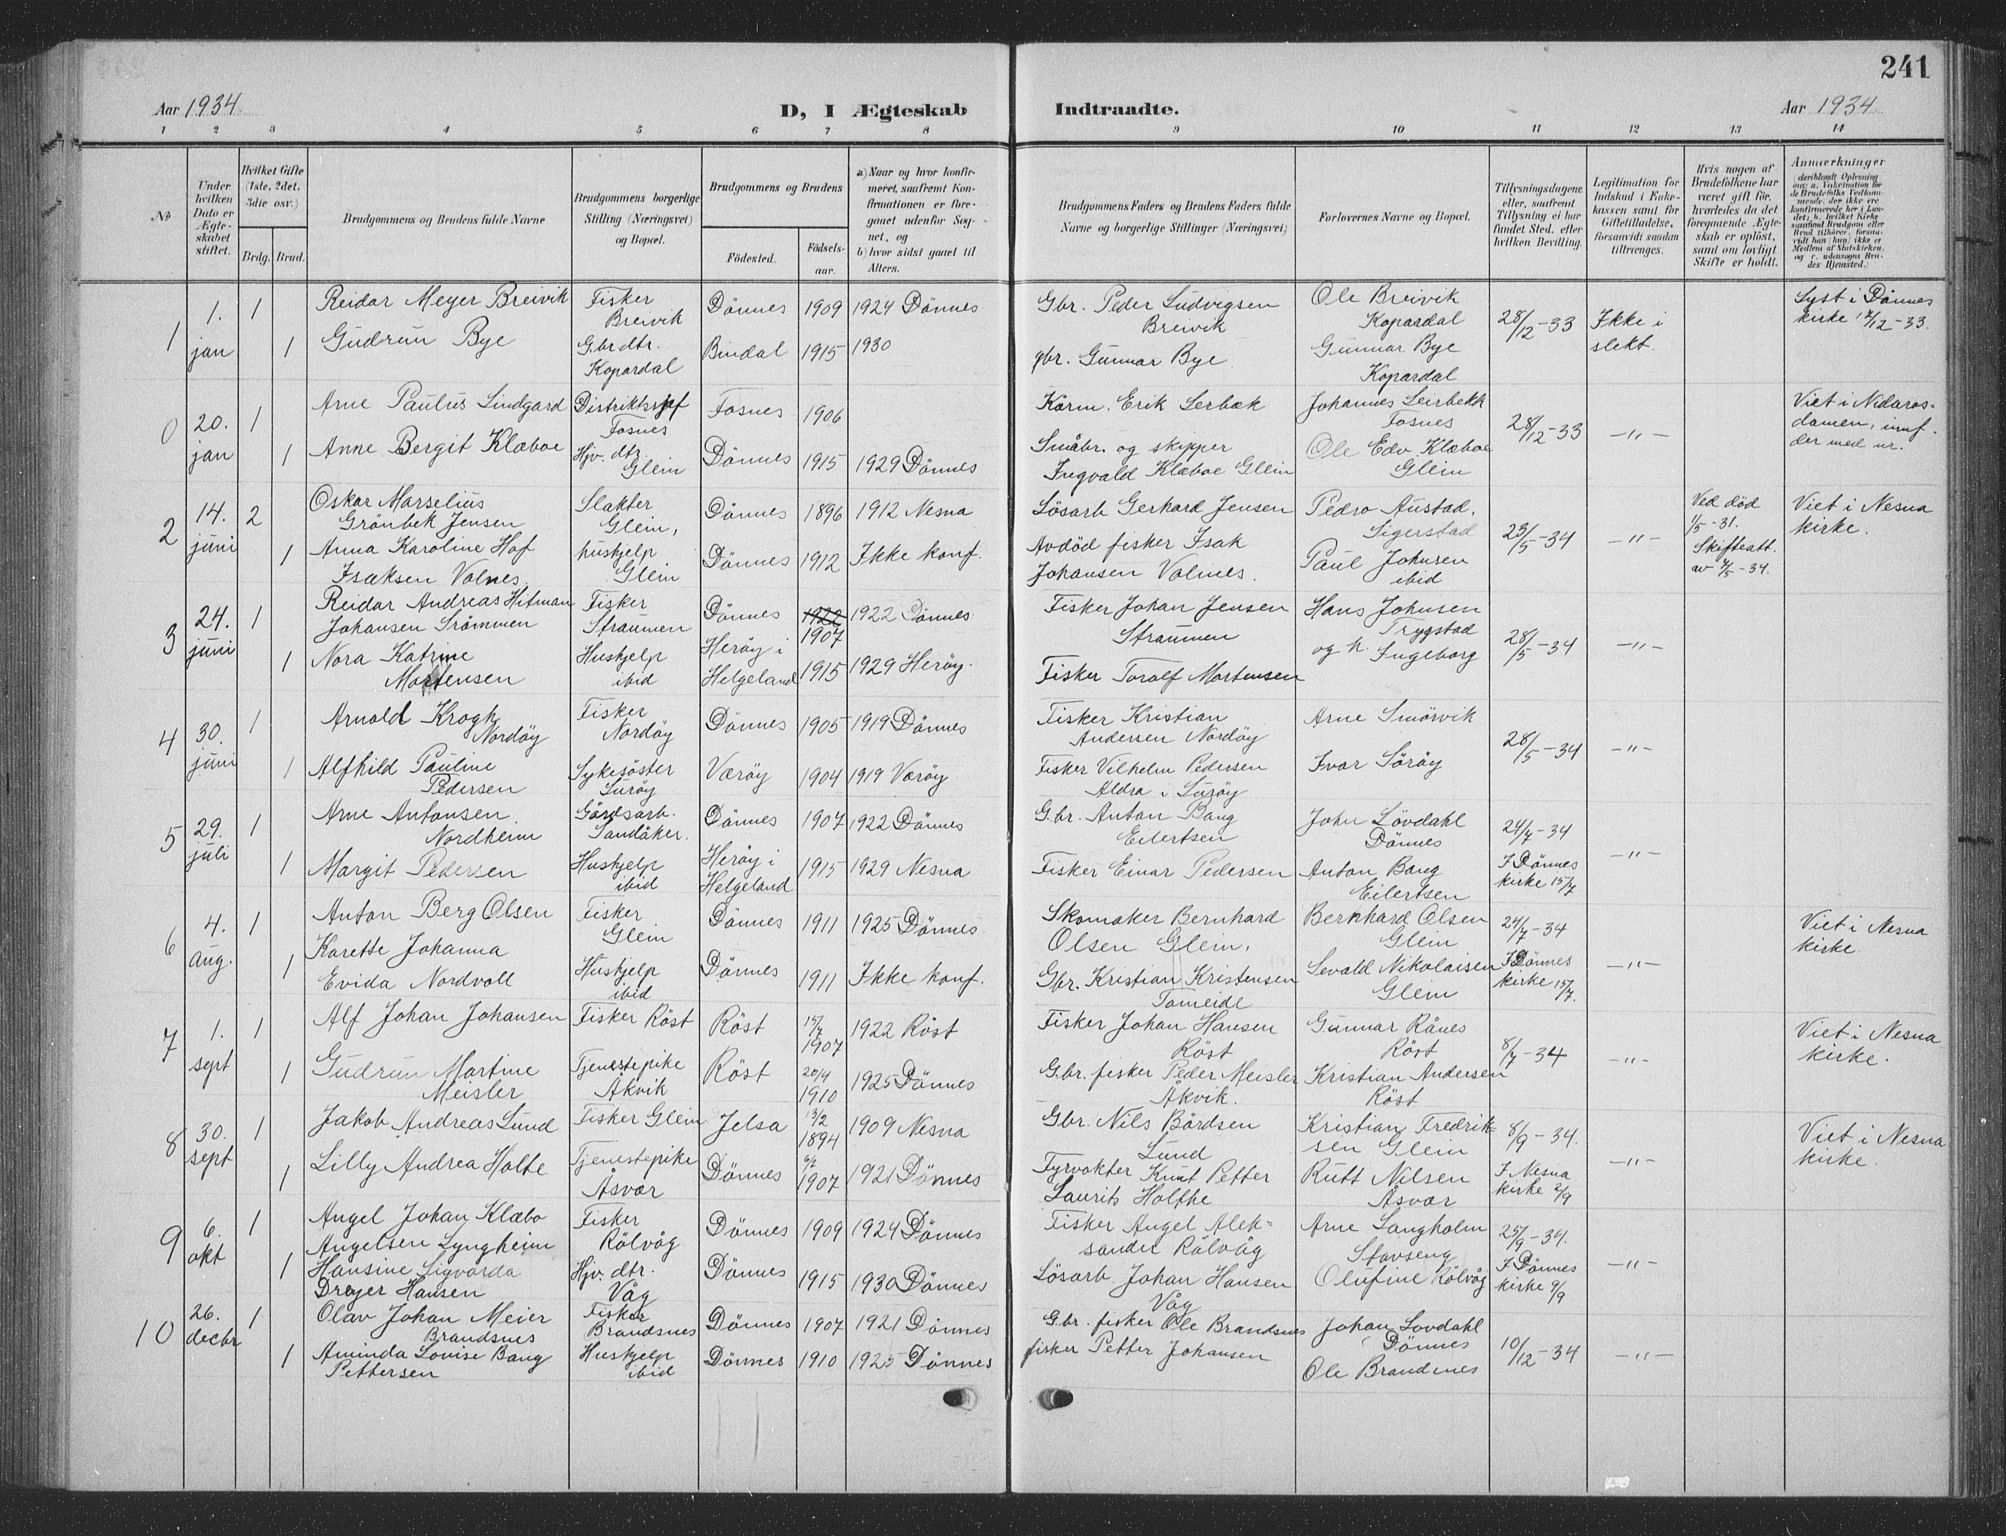 241
Aar 1934
D, I Ægteskab
Indtraadte.
Aar 1934
1 2 3 4 5 6 7 8
9 10 11 12 13 14
No
Under hvilken Dato er Ægteskabet stiftet.
Hvilket Gifte (1ste, 2det, 3die osv.)
Brdg. Brud.
Brudgommens og Brudens fulde Navne
Brudgommens borgerlige Stilling (Næringsvei) og Bopæl.
Brudgommens og Brudens
Födested.
Födselsaar.
a) Naar og hvor konfirmeret, saafremt Konfirmationen er foregaaet udenfor Sognet, og
b) hvor sidst gaaet til Alters.
Brudgommens Faders og Brudens Faders fulde Navne og borgerlige Stillinger (Næringsvei)
Forlovernes Navne og Bopæl.
Tillysningsdagene eller, saafremt Tillysning ei har fundet Sted. efter hvilken Bevilling.
Legitimation for Indskud i Enkekassen samt for Giftetilladelse, forsaavidt saadan tiltrænges.
Hvis nogen af Brudefolkene har været gift før, hvorledes da det foregaaende Ægteskab er oplöst, samt om lovligt Skifte er holdt.
Anmærkninger
1
1. jan
1
Reidar Meyer Breivik
Fisker
Breivik
Dönnes
1909
1924 Dönnes
Gbr. Peder Ludvigsen
Breivik
Ole Breivik
Kopardal
28/12-33
Ikke i
slekt.
Lyst i Dönnes
kirke 17/12-33.
1
Gudrun Bye
Gbr dtr.
Kopardal
Bindal
1915
1930
gbr. Gunnar Bye
Gunnar Bye
Kopardal
0
20. jan
1
Arne Paulus Lindgard
Distriktssjef
Fosnes
Fosnes
1906
Karm. Erik Lerbæk
Johannes Leirbekk
Fosnes
28/12-33
-"-
Viet i Nidaros-
damen, innf-
der med nr.
1
Anne Bergit Klæboe
Hjv. dtr.
Glein
Dönnes
1915
1929 Dönnes
Småbr. og skipper
Ingvald Klæboe Glein
Ole Edv Klæboe
Glein
2
14. juni
2
Oskar Marselius
Grönbek Jensen
Slakter
Glein,
Dönnes
1896
1912 Nesna
Lösarb Gerhard Jensen
Pedro Austad.
Sigerstad
23/5-34
-"-
Ved död
1/5-31.
Skifteatt.
av 4/5-34.
Viet i Nesna
kirke.
1
Anna Karoline Hof
Isaksen Valnes.
huskjelp
Glein
Dönnes
1912
Ikke konf.
Avdöd fisker Isak
Johansen Valnes.
Paul Johnsen
ibid
3
24. juni
1
Reidar Andreas Hitman
Johansen Srömmen
Fisker
Straumen
Dönnes
1922
1907
1922 Dönnes
Fisker Johan Jensen
Straumen
Hans Johnsen
Trygstad
28/5-34
-"-
1
Nora Katrine
Mortensen
Huskjelp
ibid
Heröy i
Helgeland
1915
1929 Heröy.
Fisker Toralf Mortensen
og h. Ingeborg
4
30. juni
1
Arnold Krogh
Nordöy
Fisker
Nordöy
Dönnes
1905
1919 Dönnes
Fisker Kristian
Andersen Nordöy
Arne Smörvik
28/5-34
-"-
1
Alfhild Pauline
Pedersen
Sykesöster
Luröy
Væröy
1904
1919 Væröy.
Fisker Vilhelm Pedersen
Aldra i Luröy
Ivar Söröy
5
29. juli
1
Arne Antonsen
Nordheim
Gårdsarb.
Sandåker.
Dönnes
1907
1922 Dönnes
G.br. Anton Bang
Eilertsen
John Lövdahl
Dönnes
24/7-34
-"-
1
Margit Pedersen
Huskjelp
ibid
Heröy i
Helgeland
1915
1929 Nesna
Fisker Einar Pedersen
Anton Bang
Eilertsen
I Dönnes
kirke 15/7
6
4. aug.
1
Anton Berg Olsen
Fisker
Glein
Dönnes
1911
1925 Dönnes
Skomaker Bernhard
Olsen Glein.
Bernhard Olsen
Glein
24/7-34
-"-
Viet i Nesna
kirke.
1
Karette Johanna
Evida Nordvoll
Huskjelp
ibid
Dönnes
1911
Ikke konf.
Gbr. Kristian Kristensen
Tomeide
Sevald Nikolaisen
Glein
I Dönnes
kirke 15/7.
7
1. sept
1
Alf Johan Johansen
Fisker Röst
Röst
15/7
1907
1922 Röst
Fisker Johan Hansen
Röst
Gunnar Rånes
Röst
8/7-34
-"-
Viet i Nesna
kirke.
1
Gudrun Martine
Meisler
Tjenestepike
Åkvik
Röst
20/4
1910
1925 Dönnes
Gbr. fisker Peder Meisler
Åkvik.
Kristian Andersen
Röst
8
30. sept
1
Jakob Andreas Lund
Fisker Glein
Jelsa
13/2
1894
1909 Nesna
Gbr. Nils Bårdsen
Lund
Kristian Fredrik-
sen Glein
8/9-34.
-"-
Viet i Nesna
kirke.
1
Lilly Andrea Holte
Tjenestepike
Åsvær
Dönnes
6/2
1907
1921 Dönnes
Fyrvokter Knut Petter
Laurits Holthe
Rutt Nilsen
Åsvær
I Nesna
kirke 2/9
9
6. okt
1
Angel Johan Klæbo
Angelsen Lyngheim
Fisker
Rölvåg
Dönnes
1909
1924 Dönnes
Fisker Angel Alek-
sander Rölvåg
Arne Langholm
Stavseng
25/9-34.
-"-
1
Hansine Sigvarda
Dreyer Hansen
Hjv. dtr.
Våg
Dönnes
1915
1930 Dönnes
Lösarb Johan Hansen
Våg
Olufine Rölvåg
I Dönnes
kirke 9/9
10
26. decbr
1
Olav Johan Meier
Brandsnes
Fisker
Brandsnes
Dönnes
1907
1921 Dönnes
Gbr. fisker Ole Brandsnes
Johan Lovdahl
Dönnes
10/12-34
-"-
1
Aminda Lovise Bang
Pettersen
Huskjelp
ibid
Dönnes
1910
1925 Dönnes
fisker Petter Johansen
Ole Brandsnes